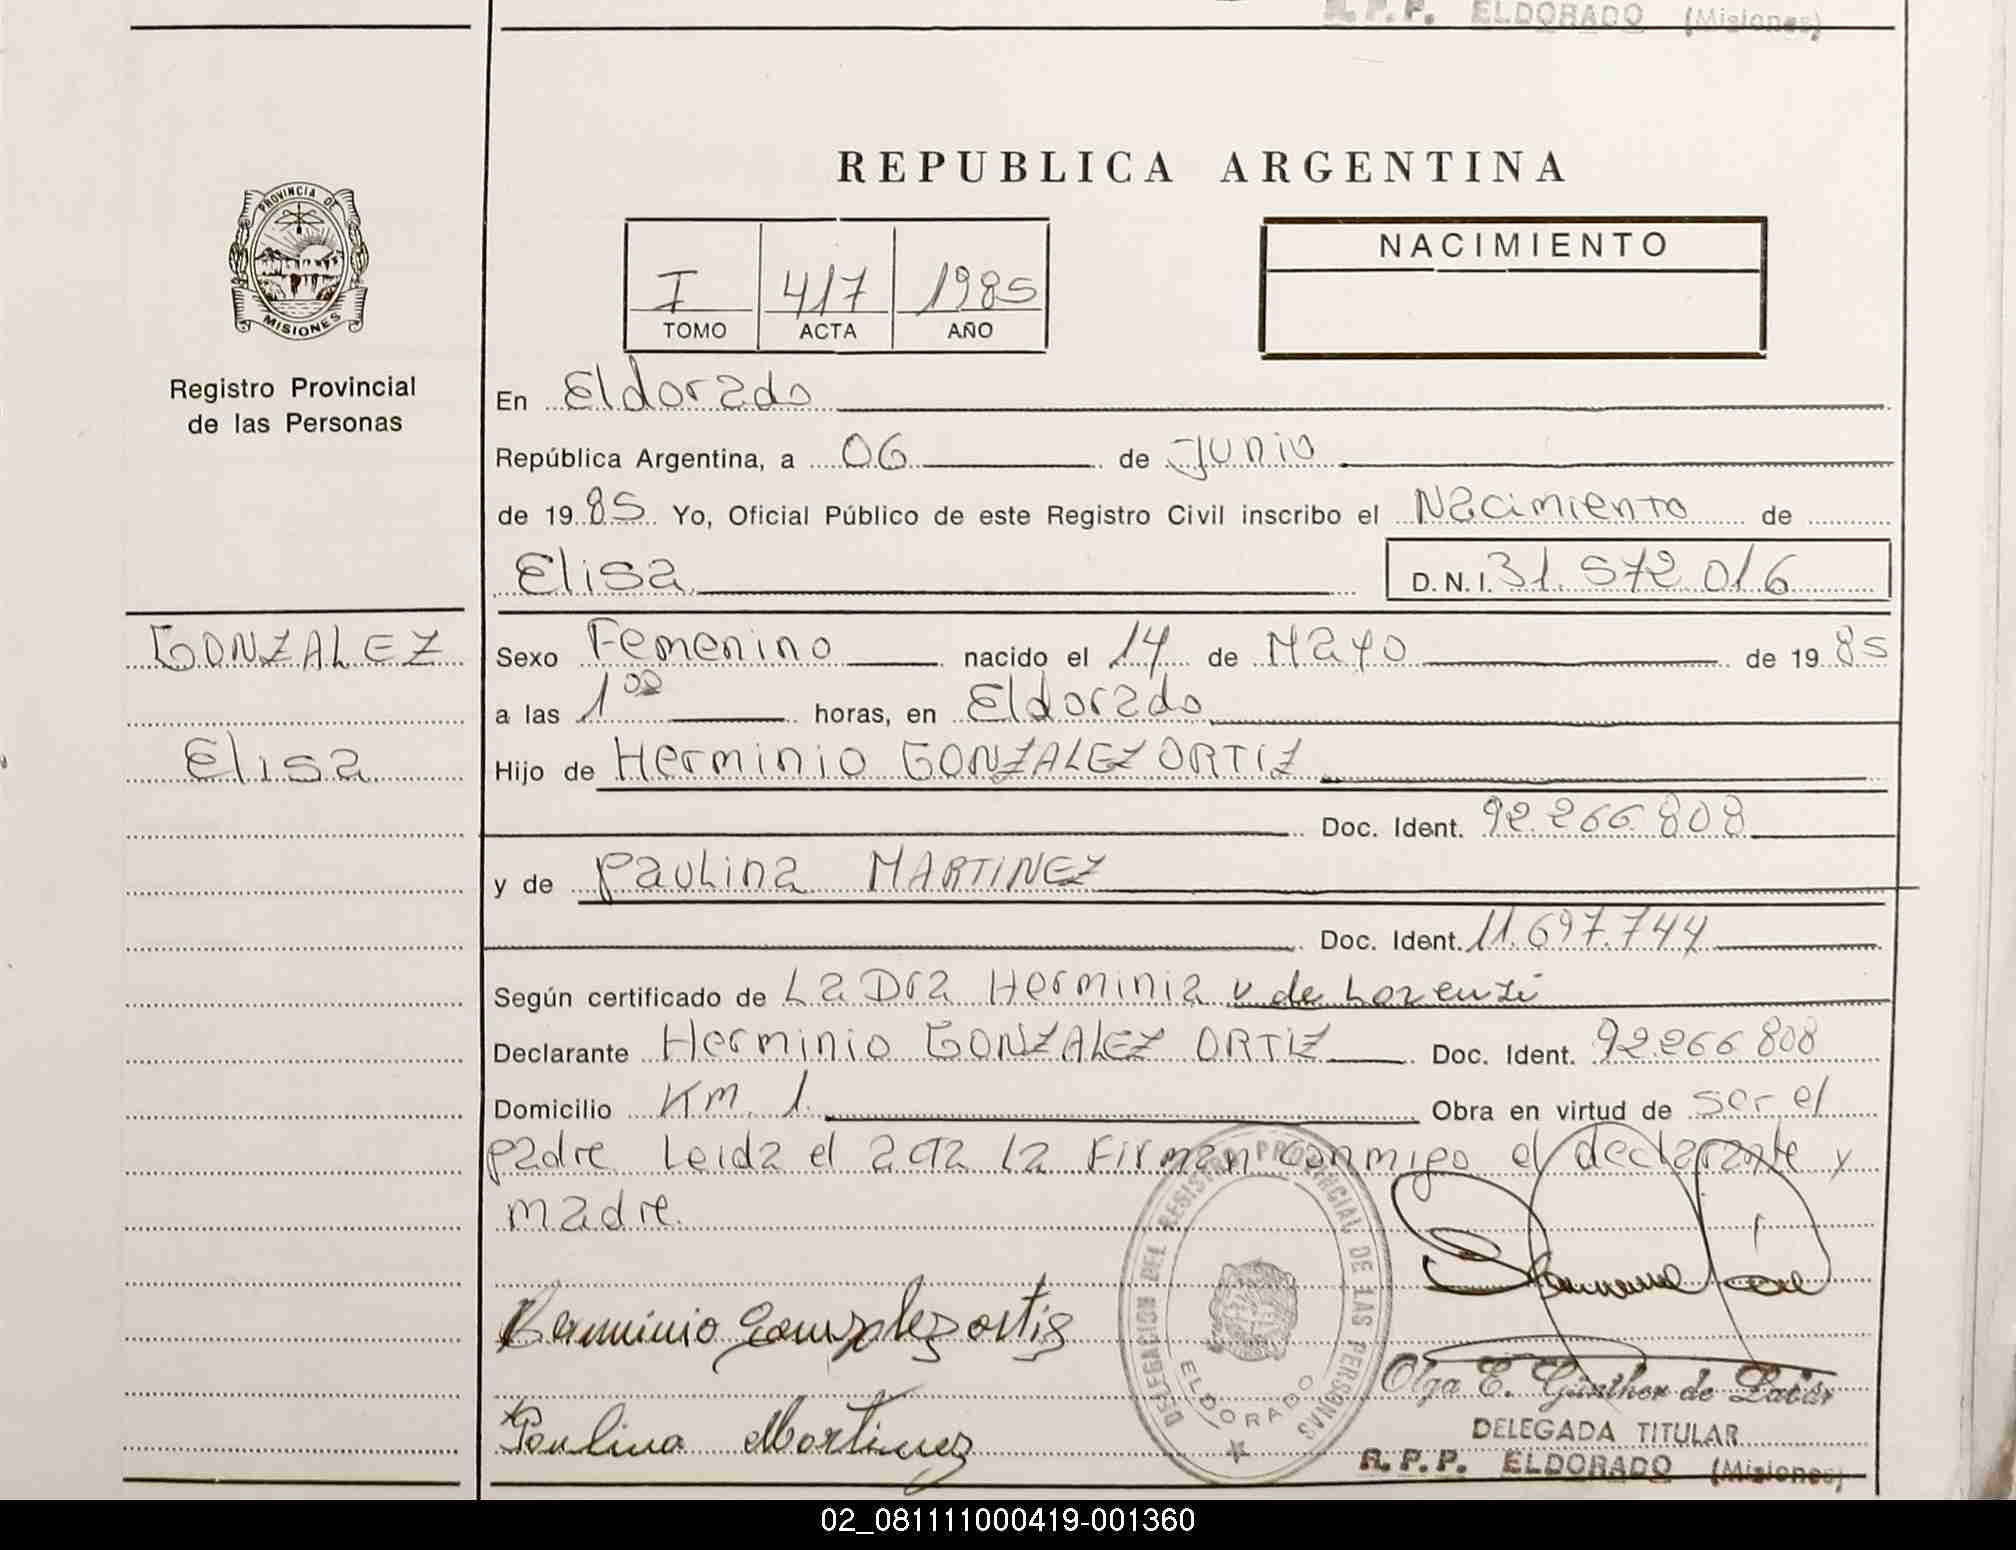 R. P. P. ELDORADO (Misiones)
REPUBLICA ARGENTINA
PROVINCIA DE
MISIONES
Registro Provincial
de las Personas
I 417 1985
TOMO ACTA AÑO
NACIMIENTO
En Eldorado
República Argentina, a 06 de Junio
de 1985 Yo, Oficial Público de este Registro Civil inscribo el Nacimiento de
Elisa D. N. I. 31.572.016
GONZALEZ
Elisa
Sexo Femenino nacido el 14 de Mayo de 1985
a las 1 00 horas, en Eldorado
Hijo de Herminio GONZALEZ ORTIZ
Doc. Ident. 92.266.808
y de Paulina MARTINEZ
Doc. Ident. 11.697.744
Según certificado de La Dra Herminia v de Lorenzi
Declarante Herminio GONZALEZ ORTIZ Doc. Ident. 92.266.808
Domicilio Km. 1. Obra en virtud de ser el
padre. Leida el acta la Firman conmigo el declarante y
madre.
DELEGACION DEL REGISTRO PROVINCIAL DE LAS PERSONAS
ELDORADO
Herminio Gonzalez ortiz
Paulina Martinez
Olga E. Günther de
DELEGADA TITULAR
R. P. P. ELDORADO (Misiones)
02_081111000419-001360